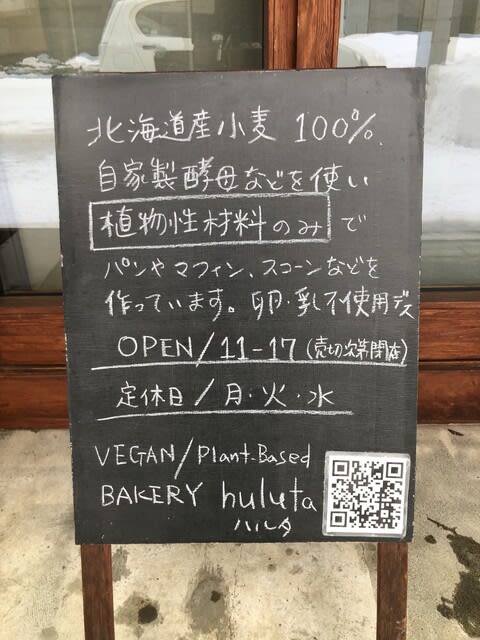 北海道産小麦 100%.
自家製酵母などを使い
植物性材料のみ で
パンやマフィン、スコーンなどを
作っています。卵・乳不使用デス
OPEN/11-17(売切次第閉店)
定休日/月・火・水
VEGAN/Plant-Based
BAKERY huluta
ハルタ